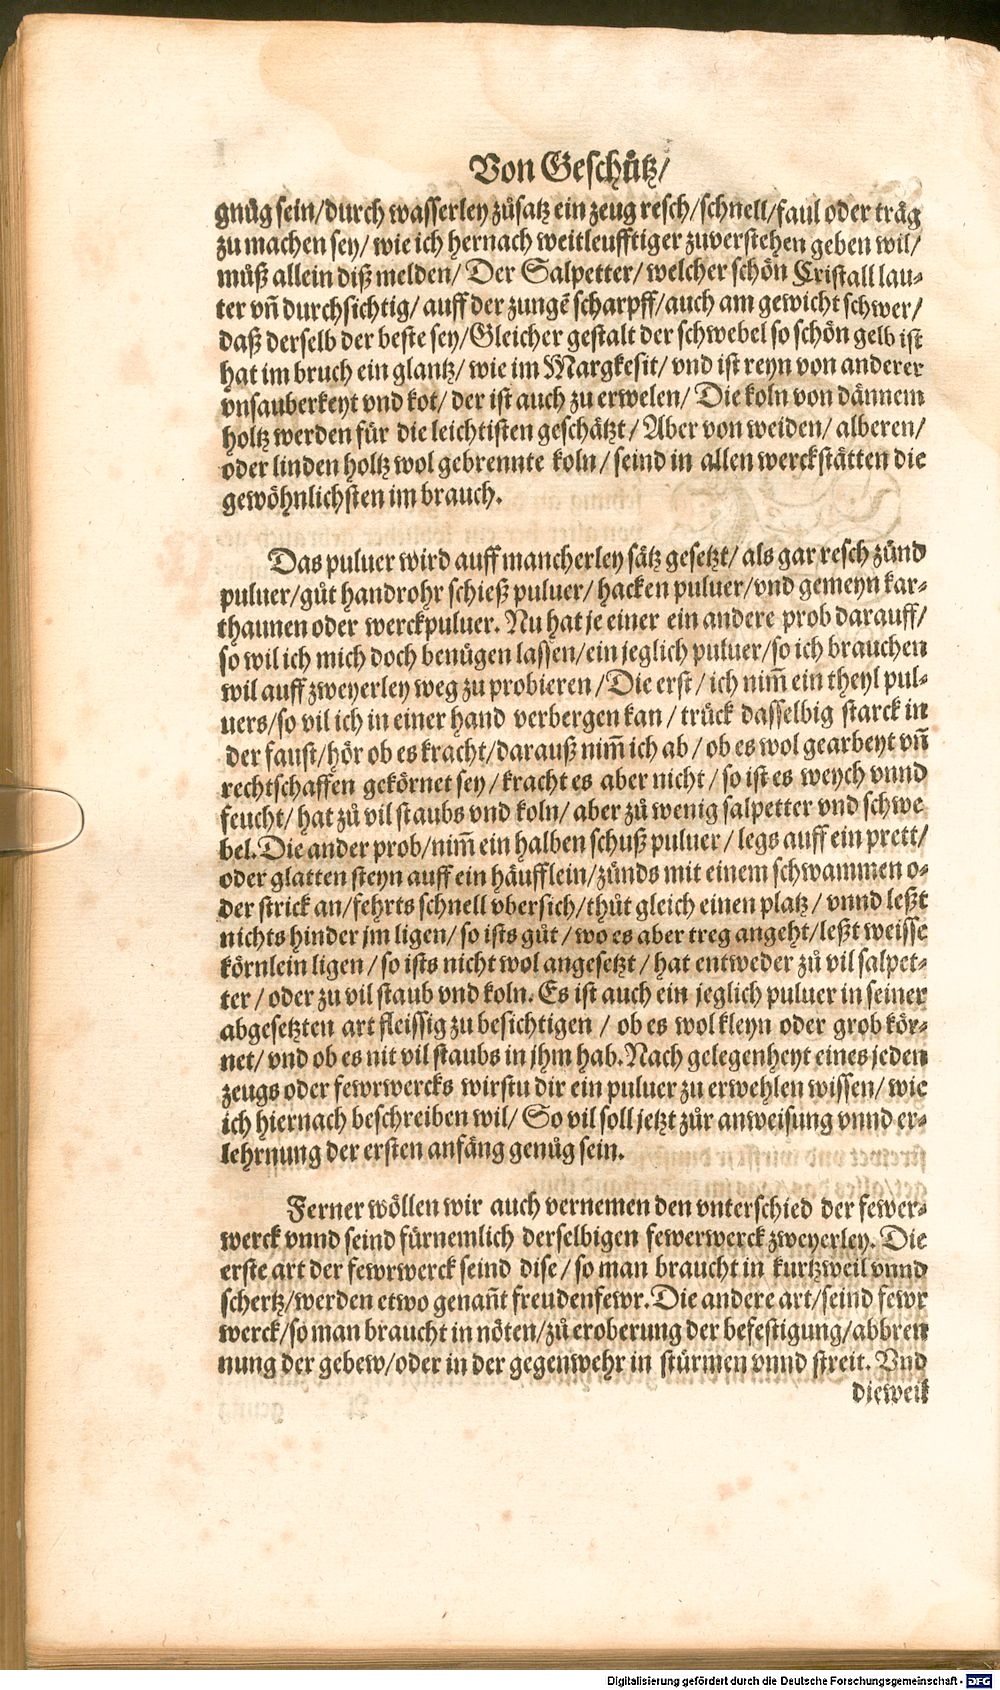 Von Geschütz/
gnůg sein/durch wasserley zůsatz ein zeug resch/schnell/faul oder träg
zu machen sey/ wie ich hernach weitleufftiger zuverstehen geben wil/
můß allein diß melden/ Der Salpetter/ welcher schön Cristall lau-
ter vñ durchsichtig/ auff der zungẽ scharpff/ auch am gewicht schwer/
daß derselb der beste sey/Gleicher gestalt der schwebel so schön gelb ist
hat im bruch ein glantz/ wie im Margkesit/ vnd ist reyn von anderer
vnsauberkeyt vnd kot/ der ist auch zu erwelen/ Die koln von dännem
holtz werden für die leichtisten geschätzt/ Aber von weiden/ alberen/
oder linden holtz wol gebrennte koln/ seind in allen werckstätten die
gewöhnlichsten im brauch.
Das puluer wird auff mancherley sätz gesetzt/ als gar resch zünd
puluer/gůt handrohr schieß puluer/ hacken puluer/vnd gemeyn kar-
thaunen oder werckpuluer. Nu hat je einer ein andere prob darauff/
so wil ich mich doch benügen lassen/ein jeglich puluer/so ich brauchen
wil auff zweyerley weg zu probieren/Die erst/ ich nim̃ ein theyl pul-
uers/so vil ich in einer hand verbergen kan/ trück dasselbig starck in
der faust/hör ob es kracht/darauß nim̃ ich ab/ ob es wol gearbeyt vñ
rechtschaffen gekörnet sey/kracht es aber nicht/ so ist es weych vnnd
feucht/ hat zů vil staubs vnd koln/ aber zů wenig salpetter vnd schwe
bel. Die ander prob/nim̃ ein halben schuß puluer/ legs auff ein prett/
oder glatten steyn auff ein häufflein/zünds mit einem schwammen o-
der strick an/fehrts schnell vbersich/thůt gleich einen platz/ vnnd leßt
nichts hinder jm ligen/ so ists gůt/ wo es aber treg angeht/leßt weisse
körnlein ligen/ so ists nicht wol angesetzt/ hat entweder zů vil salpet-
ter/ oder zu vil staub vnd koln. Es ist auch ein jeglich puluer in seiner
abgesetzten art fleissig zu besichtigen/ ob es wol kleyn oder grob kör-
net/ vnd ob es nit vil staubs in jhm hab. Nach gelegenheyt eines jeden
zeugs oder fewrwercks wirstu dir ein puluer zu erwehlen wissen/ wie
ich hiernach beschreiben wil/ So vil soll jetzt zůr anweisung vnnd er-
lehrnung der ersten anfäng genůg sein.
Ferner wöllen wir auch vernemen den vnterschied der fewer-
werck vnnd seind fürnemlich derselbigen fewerwerck zweyerley. Die
erste art der fewrwerck seind dise/ so man braucht in kurtzweil vnnd
schertz/werden etwo genañt freudenfewr. Die andere art/seind fewr
werck/so man braucht in nöten/zů eroberung der befestigung/abbren
nung der gebew/oder in der gegenwehr in stürmen vnnd streit. Vnd
dieweil
Digitalisierung gefördert durch die Deutsche Forschungsgemeinschaft - DFG